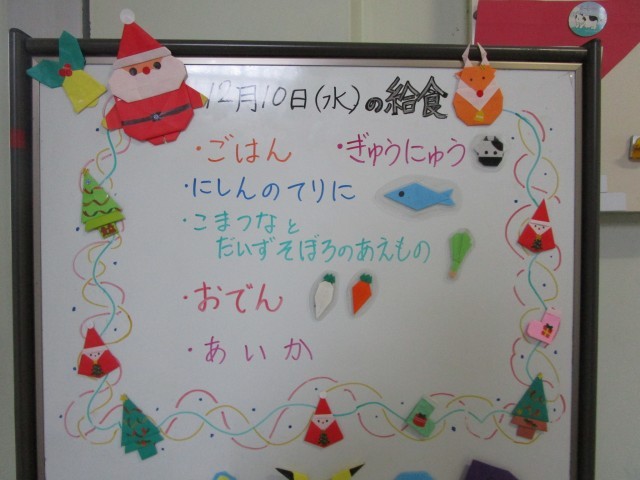 12月10日(水)の給食
・ごはん ・ぎゅうにゅう
・にしんのてりに
・こまつなと
だいずそぼろのあえもの
・おでん
・あいか